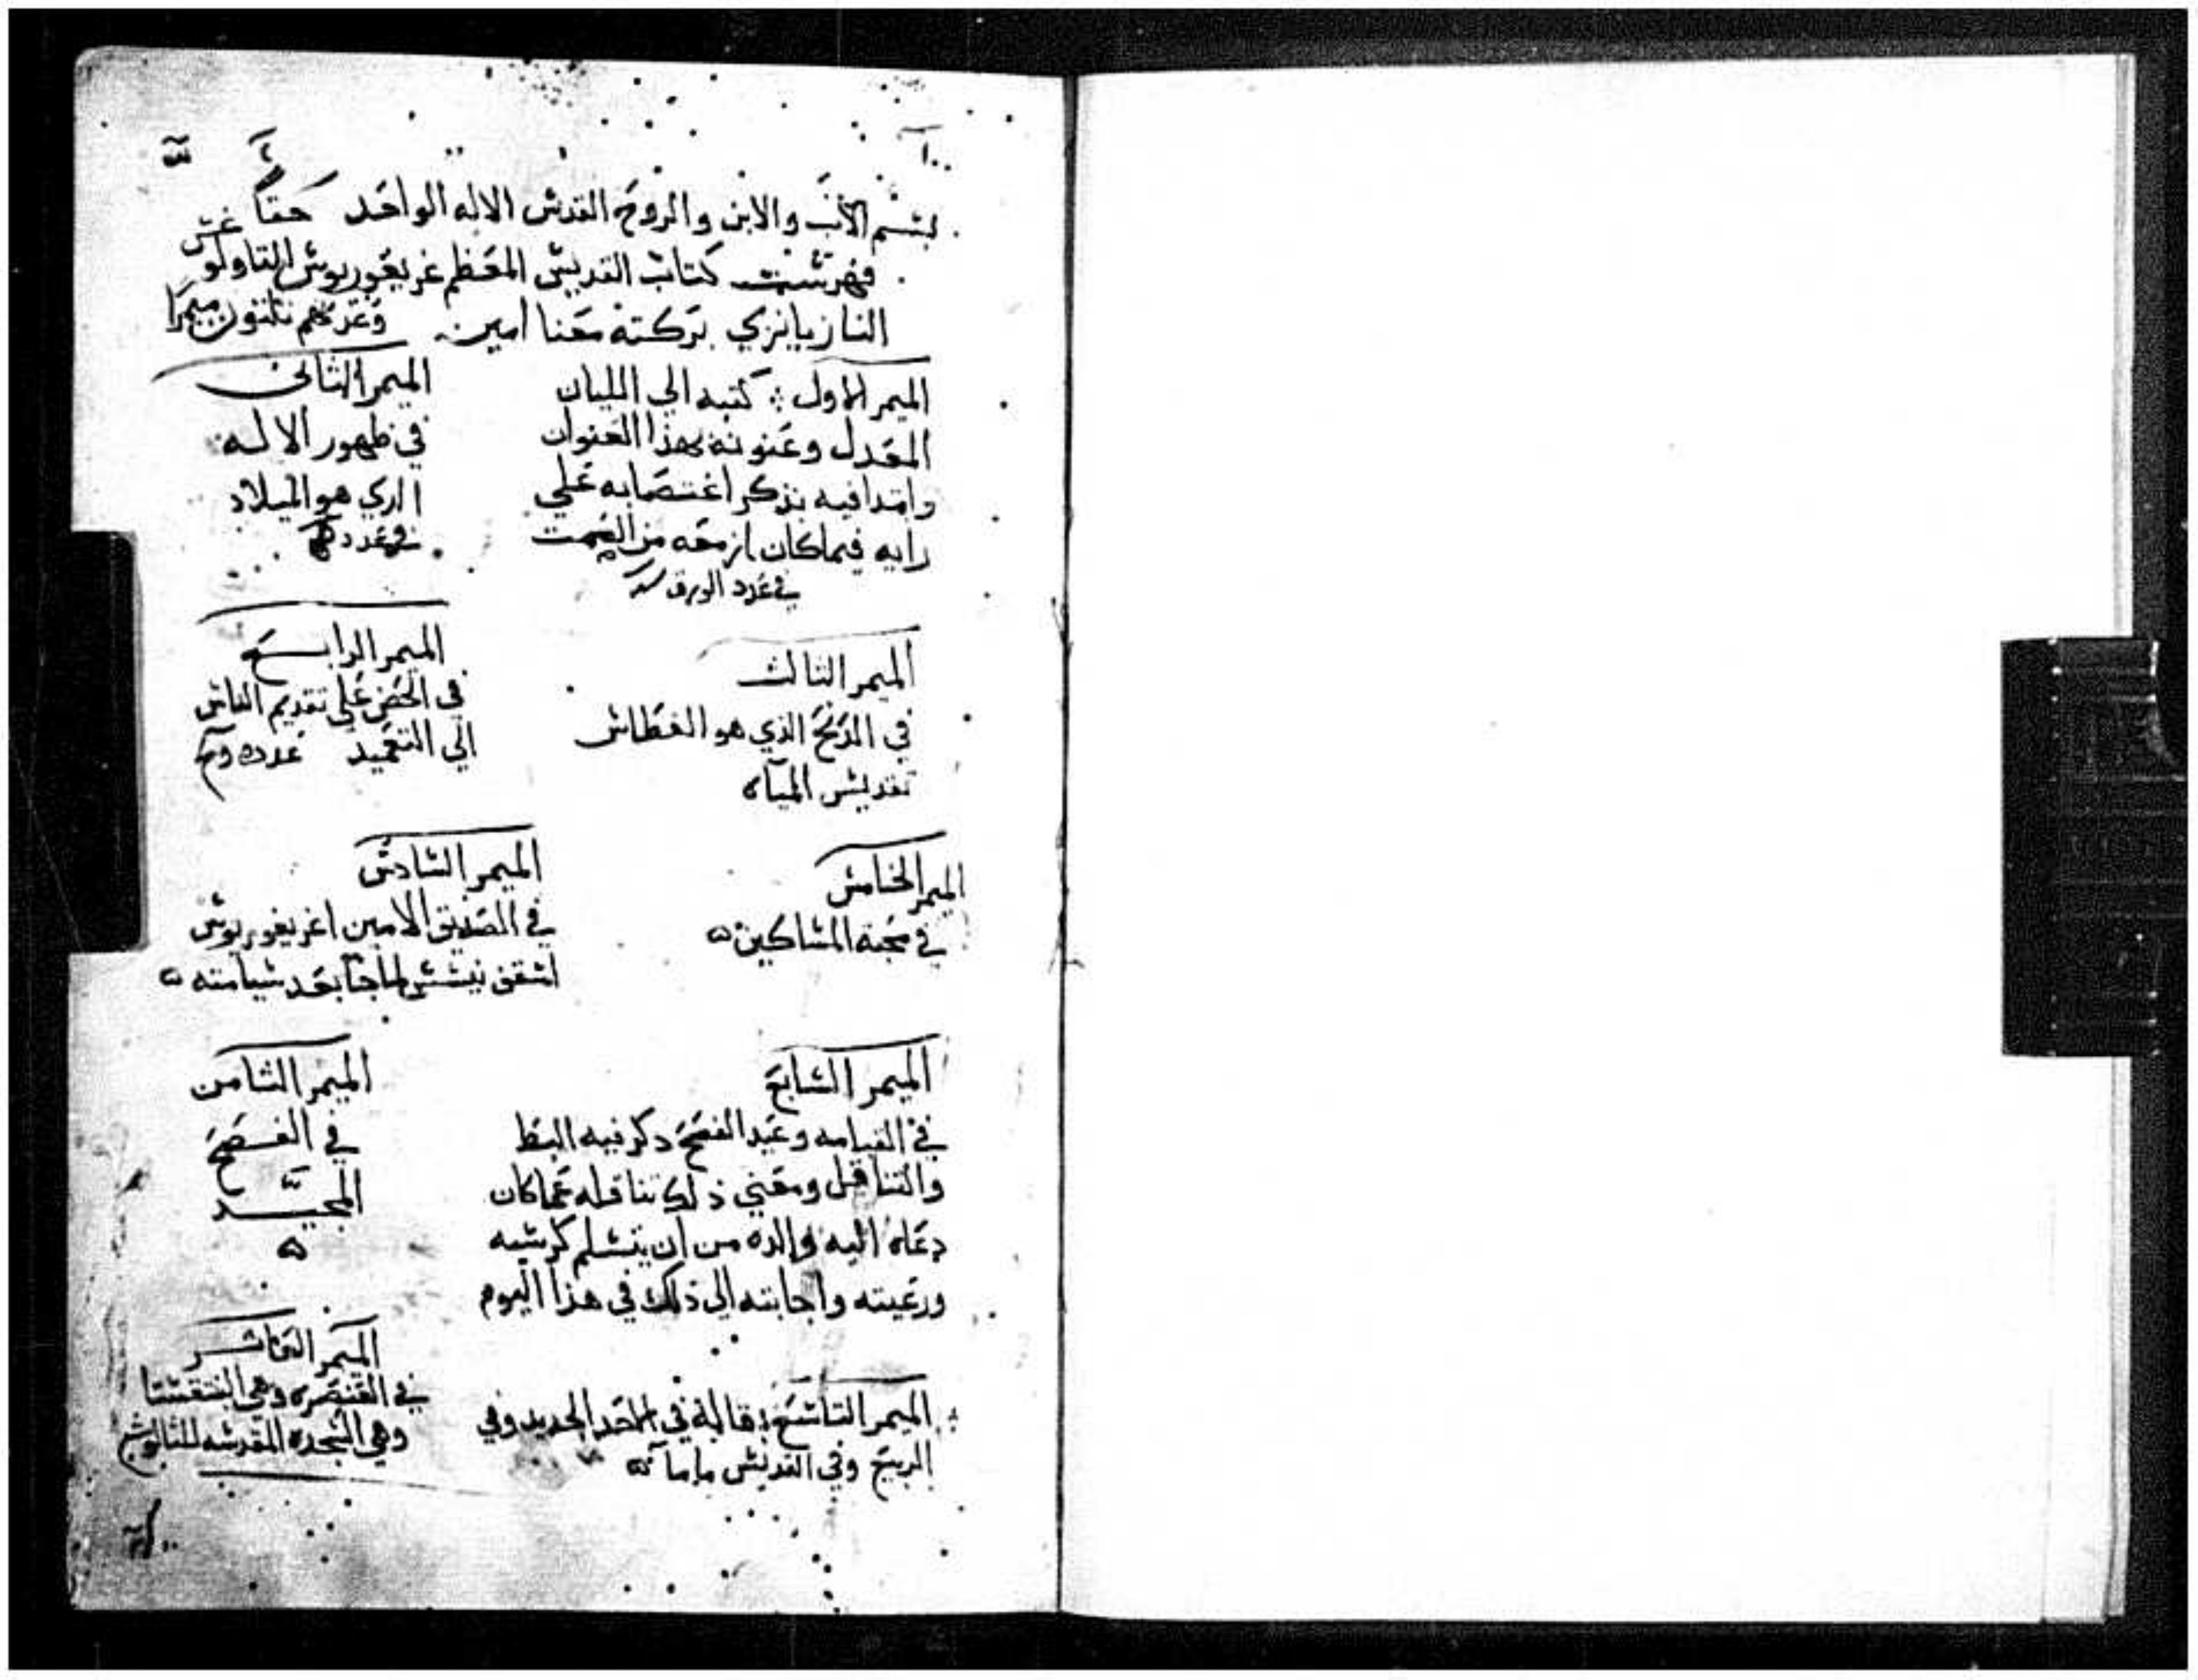 بسم الاب والابن والروح القدس الاله الواحد حقاً
فهرست كتاب القديس المعظم غريغوريوس التاولوغس
النازيانزي بركته معنا امين وعدتهم ثلثون ميمرا
الميمر الاول كتبه الي اليليان
المعدل وعنونه بهذا العنوان
وابتدا فيه بذكر اغتصابه علي
رايه فيما كان ازمعه من الصمت
في عدد الورق
الميمر الثاني
في ظهور الاله
الدي هو الميلاد
في عدد
الميمر الثالث
في الدنح الذي هو الغطاس
تقديس المياه
الميمر الرابع
في الحض علي تقديم الناس
الي التعميد عدده
الميمر الخامس
في محبة المساكين
الميمر السادس
في الصديق الامين اغريغوريوس
اسقف نيسس لما جا بعد سيامته
الميمر السابع
في القيامه وعيد الفصح دكر فيه البطا
والتثاقل ومعني ذلك تثاقله عما كان
دعاه اليه والده من ان يتسلم كرسيه
ورعيته واجابته الي ذلك في هذا اليوم
الميمر الثامن
في الفصح
المجيد
الميمر التاسع قاله في الاحد الجديد وفي
الربيع وفي القديس ماما
الميمر العاشر
في العنصره وهي البنتقستا
وهي السجده المقدسه للثالوث